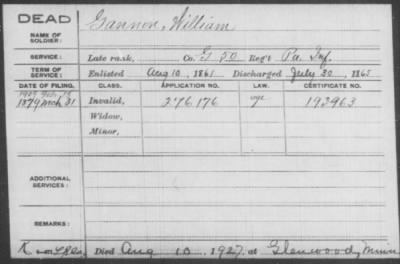 DEAD
Gannon, William
NAME OF SOLDIER:
SERVICE: Late rank, Co. G 50 Reg't Pa. Inf.
TERM OF SERVICE: Enlisted Aug 10, 1861 Discharged July 30, 1865
DATE OF FILING. CLASS. APPLICATION NO. LAW. CERTIFICATE NO.
1879 Mch 31 Invalid, 276,176 193963
Widow,
Minor,
ADDITIONAL SERVICES:
REMARKS:
Died Aug 10, 1927, at Glenwood, Minn